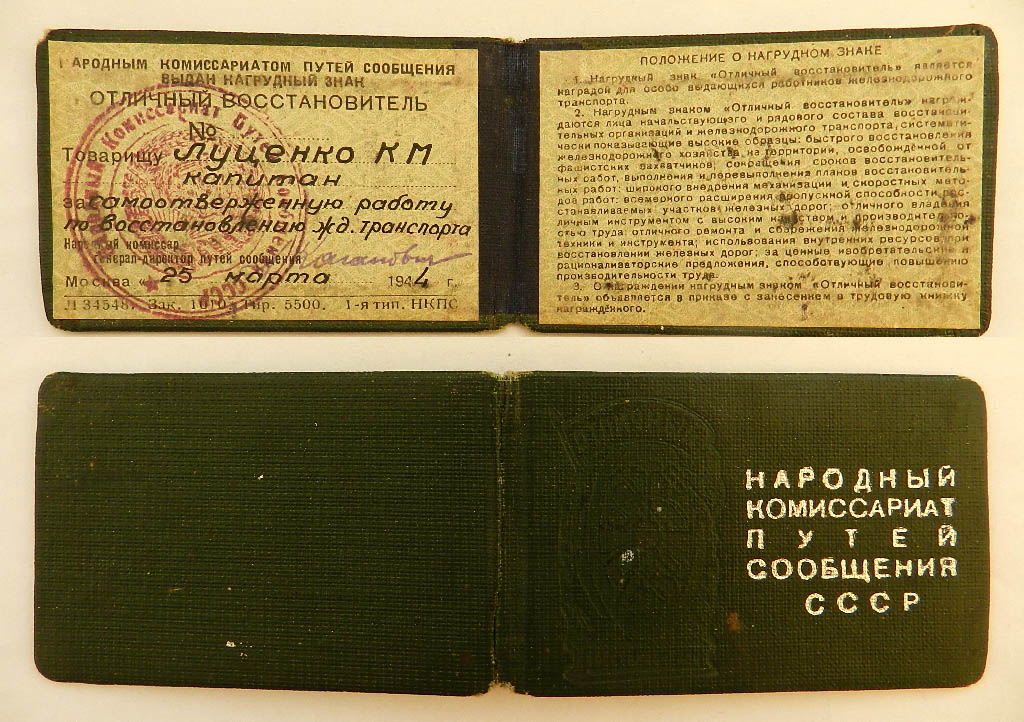 НАРОДНЫМ КОМИССАРИАТОМ ПУТЕЙ СООБЩЕНИЯ
ВЫДАН НАГРУДНЫЙ ЗНАК
ОТЛИЧНЫЙ ВОССТАНОВИТЕЛЬ
№
Товарищу Луценко КМ
капитан
за самоотверженную работу
по восстановлению жд. транспорта
Народный комиссар
генерал-директор путей сообщения
Москва « 25 марта 1944 г.
Л 34548. Зак. 1610. Тир. 5500. 1-я тип. НКПС
ПОЛОЖЕНИЕ О НАГРУДНОМ ЗНАКЕ
1. Нагрудный знак «Отличный восстановитель» является
наградой для особо выдающихся работников железнодорожного
транспорта.
2. Нагрудным знаком «Отличный восстановитель» награж-
даются лица начальствующего и рядового состава восстанови-
тельных организаций и железнодорожного транспорта, системати-
чески показывающие высокие образцы: быстрого восстановления
железнодорожного хозяйства на территории, освобождённой от
фашистских захватчиков; сокращения сроков восстановитель-
ных работ, выполнения и перевыполнения планов восстановитель-
ных работ: широкого внедрения механизации и скоростных мето-
дов работ: всемерного расширения пропускной способности вос-
станавливаемых участков железных дорог; отличного владения
личным инструментом с высоким качеством и производительно-
стью труда: отличного ремонта и сбережения железнодорожной
техники и инструмента; использования внутренних ресурсов при
восстановлении железных дорог; за ценные изобретательские и
рационализаторские предложения, способствующие повышению
производительности труда.
3. О награждении нагрудным знаком «Отличный восстанови-
тель» объявляется в приказе с занесением в трудовую книжку
награждённого.
НАРОДНЫЙ
КОМИССАРИАТ
ПУТЕЙ
СООБЩЕНИЯ
СССР